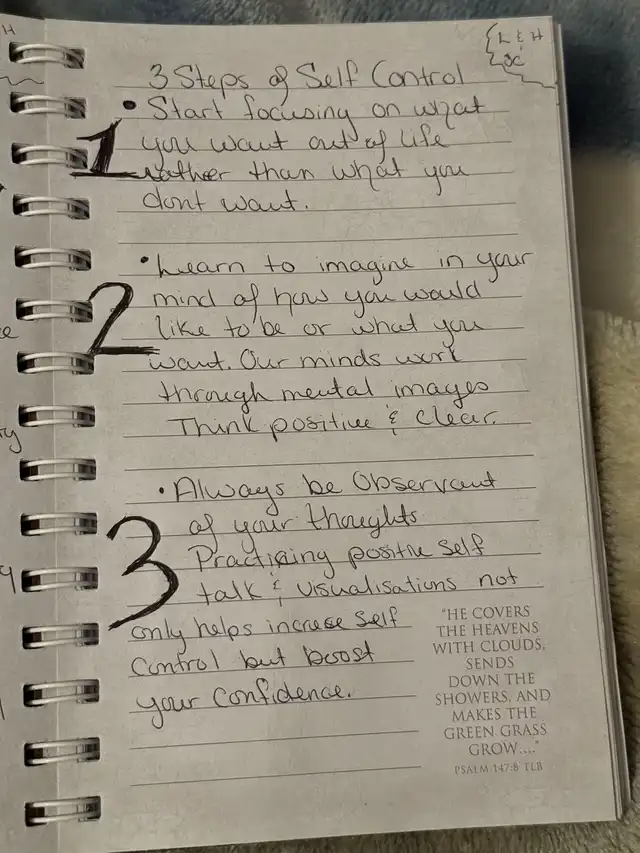 H
L & H
3 Steps of Self Control
• Start focusing on what
1
you want out of life
rather than what you
dont want.
• Learn to imagine in your
2
mind of how you would
like to be or what you
want. Our minds work
through mental images
Think positive & clear.
• Always be Observant
3
of your thoughts
Practicing positive self
talk & visualisations not
only helps increse self
control but boost
your confidence.
"HE COVERS
THE HEAVENS
WITH CLOUDS,
SENDS
DOWN THE
SHOWERS, AND
MAKES THE
GREEN GRASS
GROW...."
PSALM 147:8 TLB